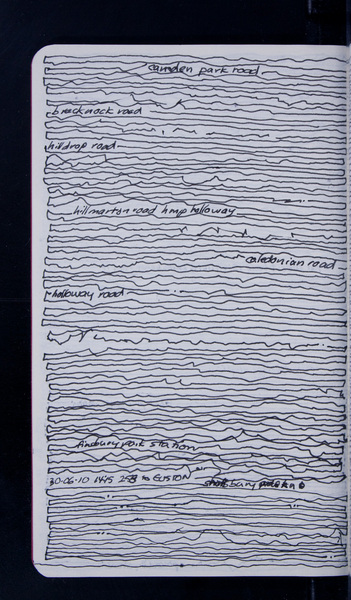 camden park road
brecknock road
hilldrop road
hillmarton road hmp holloway
caledonian road
holloway road
finsbury park station
30·06·10 1445 253 to EUSTON